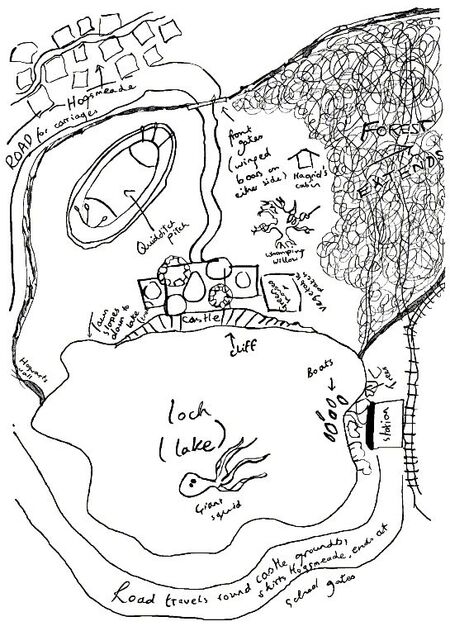 Hogsmeade
ROAD for carriages
front
gates
(winged
boars on
either side)
FOREST
EXTENDS
Hagrid's
cabin
Quidditch
pitch
Whomping
willow
Lawn
slopes
down to
lake
Castle
cliff
Hogwarts
wall
Boats
Trees
station
loch
(lake)
Giant
squid
Road travels round castle grounds,
skirts Hogsmeade, ends at
school gates